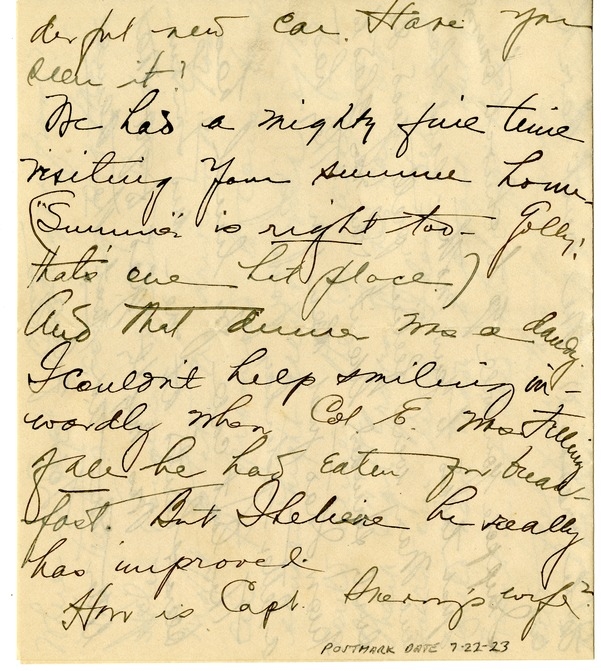 derful new car. Have you
seen it?
We had a mighty fine time
visiting your summer home.
("Summer" is right too - Golly!
that's one hot place)
And that dinner was a dandy.
I couldn't help smiling in-
wardly when Col. E. was telling
of all he had eaten for break-
fast. But I believe he really
has improved.
How is Capt. wife?
POSTMARK DATE 7-22-23